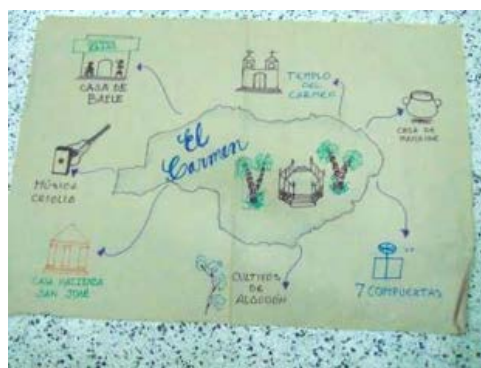 CASA DE
BAILE
TEMPLO
DEL
CARMEN
CASA DE
El
Carmen
MÚSICA
CRIOLLA
CASA HACIENDA
SAN JOSÉ
CULTIVOS
DE
ALGODÓN
7 COMPUERTAS